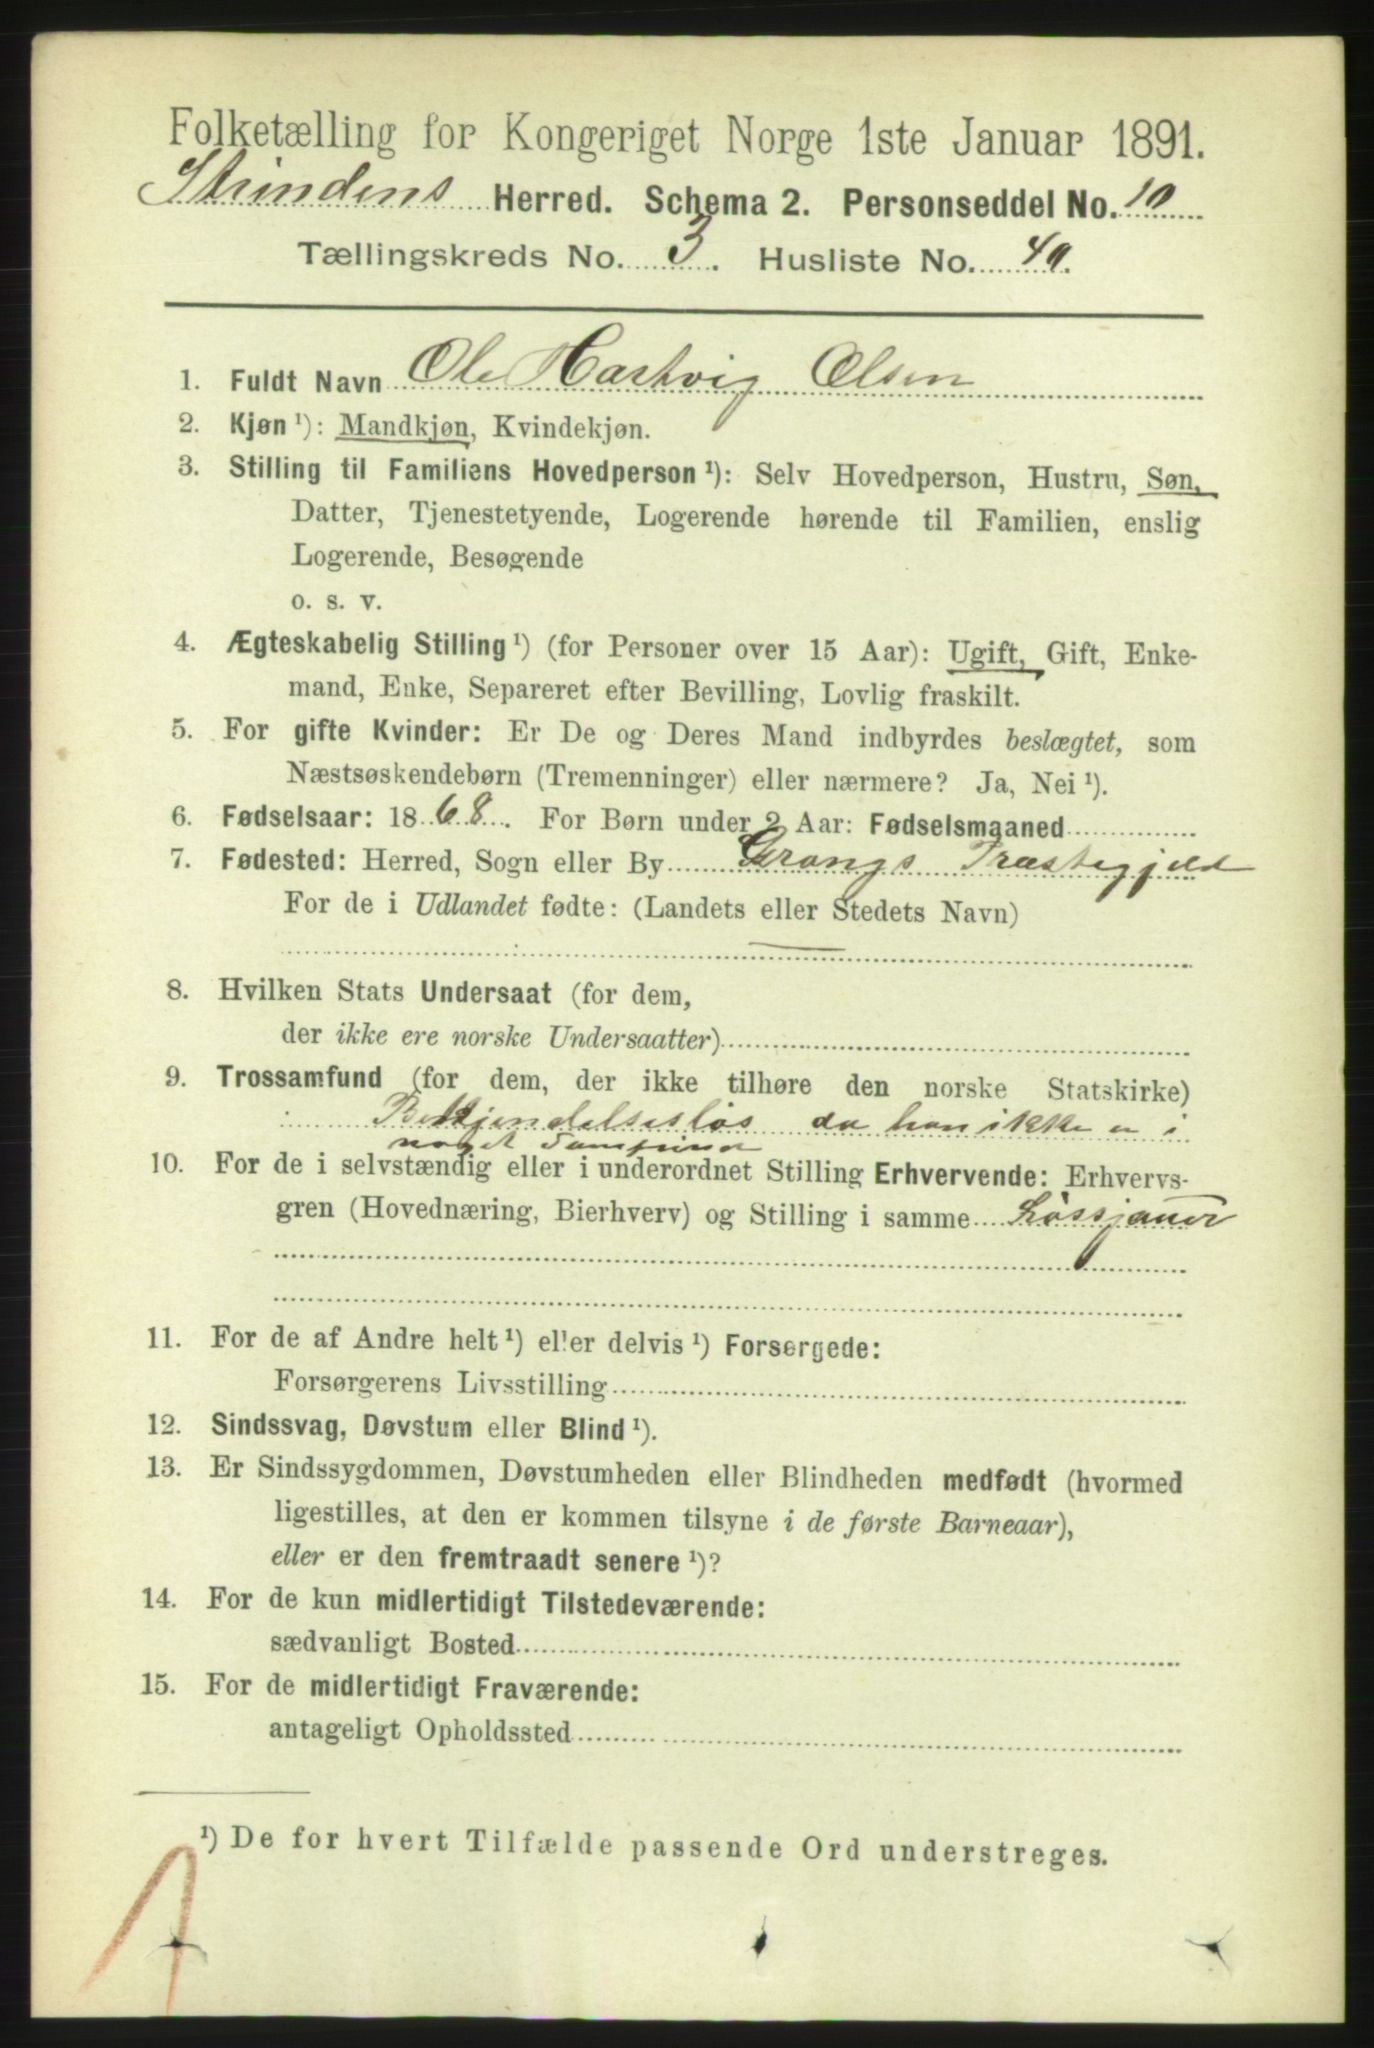 Folketælling for Kongeriget Norge 1ste Januar 1891.
Strindens Herred. Schema 2. Personseddel No. 10
Tællingskreds No. 3. Husliste No. 40.
1. Fuldt Navn Ole Hartvig Olsen
2. Kjøn ¹): Mandkjøn, Kvindekjøn.
3. Stilling til Familiens Hovedperson ¹): Selv Hovedperson, Hustru, Søn,
Datter, Tjenestetyende, Logerende hørende til Familien, enslig
Logerende, Besøgende
o. s. v.
4. Ægteskabelig Stilling ¹) (for Personer over 15 Aar): Ugift, Gift, Enke-
mand, Enke, Separeret efter Bevilling, Lovlig fraskilt.
5. For gifte Kvinder: Er De og Deres Mand indbyrdes beslægtet, som
Næstsøskendebørn (Tremenninger) eller nærmere? Ja, Nei ¹).
6. Fødselsaar: 1868. For Børn under 2 Aar: Fødselsmaaned
7. Fødested: Herred, Sogn eller By Grongs Præstegjeld
For de i Udlandet fødte: (Landets eller Stedets Navn)
8. Hvilken Stats Undersaat (for dem,
der ikke ere norske Undersaatter)
9. Trossamfund (for dem, der ikke tilhøre den norske Statskirke)
Bekjendelsesløs da han ikke er i
noget Samfund
10. For de i selvstændig eller i underordnet Stilling Erhvervende: Erhvervs-
gren (Hovednæring, Bierhverv) og Stilling i samme Løssjauer
11. For de af Andre helt ¹) eller delvis ¹) Forsørgede:
Forsørgerens Livsstilling
12. Sindssvag, Døvstum eller Blind ¹).
13. Er Sindssygdommen, Døvstumheden eller Blindheden medfødt (hvormed
ligestilles, at den er kommen tilsyne i de første Barneaar),
eller er den fremtraadt senere ¹)?
14. For de kun midlertidigt Tilstedeværende:
sædvanligt Bosted
15. For de midlertidigt Fraværende:
antageligt Opholdssted
¹) De for hvert Tilfælde passende Ord understreges.